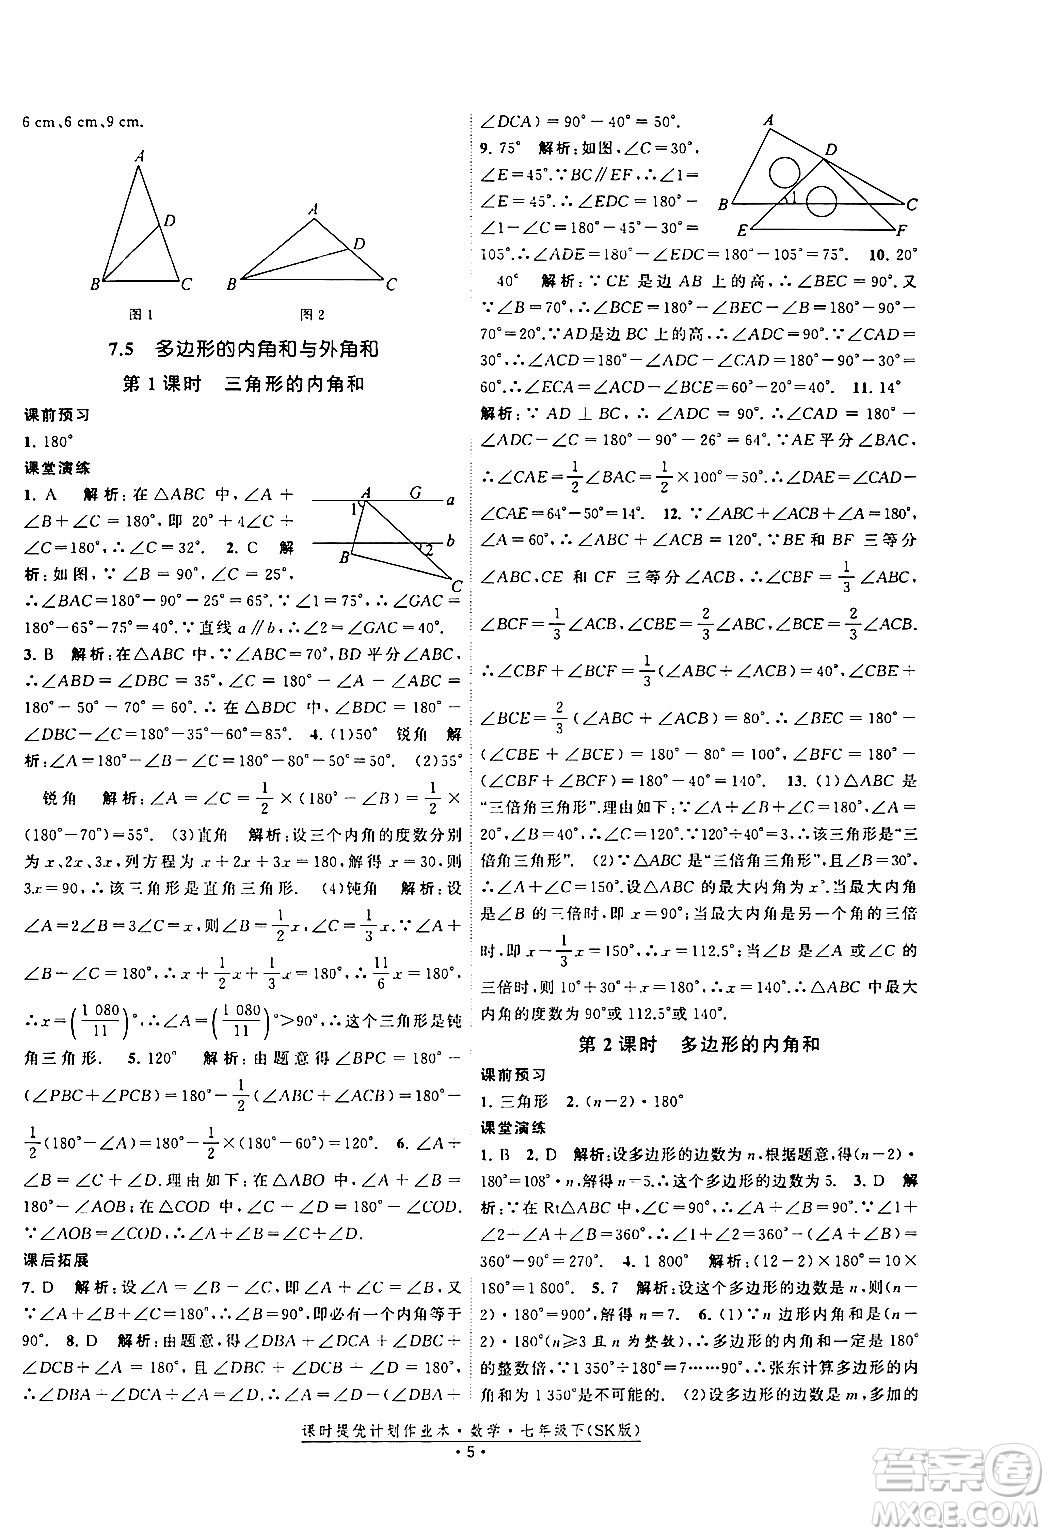 6 cm、6 cm、9 cm.
A
D
B
C
图1
A
D
B
C
图2
7.5 多边形的内角和与外角和
第1课时 三角形的内角和
课前预习
1. 180°
课堂演练
1. A 解析:在△ABC中,∠A+
∠B+∠C=180°,即 20°+4∠C+
∠C=180°,∴∠C=32°. 2. C 解
析:如图,∵∠B=90°,∠C=25°,
A G a
1
B 2 b
C
∴∠BAC=180°-90°-25°=65°.∵∠1=75°,∴∠GAC=
180°-65°-75°=40°.∵直线a∥b,∴∠2=∠GAC=40°.
3. B 解析:在△ABC中,∵∠ABC=70°,BD平分∠ABC,
∴∠ABD=∠DBC=35°,∵∠A=50°,∴∠C=
180°-50°-70°=60°.∴在△BDC中,∠BDC=180°-
∠DBC-∠C=180°-35°-60°=85°. 4. (1)50° 锐角 解
析:∠A=180°-∠B-∠C=180°-100°-30°=50°. (2)55°
锐角 解析:∠A=∠C=1/2×(180°-∠B)=1/2×
(180°-70°)=55°. (3)直角 解析:设三个内角的度数分别
为x、2x、3x,列方程为x+2x+3x=180,解得x=30,则
3x=90,∴该三角形是直角三角形. (4)钝角 解析:设
∠A=2∠B=3∠C=x,则∠B=1/2x,∠C=1/3x.∵∠A+
∠B+∠C=180°,∴x+1/2x+1/3x=180°,∴11/6x=180°,
∴x=(1 080/11)°,∴∠A=(1 080/11)°>90°,∴这个三角形是钝
角三角形. 5. 120° 解析:由题意得∠BPC=180°-
(∠PBC+∠PCB)=180°-1/2(∠ABC+∠ACB)=180°-
1/2(180°-∠A)=180°-1/2×(180°-60°)=120°. 6. ∠A+
∠B=∠C+∠D 解析:由题意得在△ABO中,∠A+∠B=
180°-∠AOB;在△COD中,∠C+∠D=180°-∠COD.
∵∠AOB=∠COD,∴∠A+∠B=∠C+∠D.
课后拓展
7. D 解析:设∠A=∠B+∠C,则∠B+∠C=∠A,又
∵∠A+∠B+∠C=180°,∴∠A=90°,即必有一个内角等于
90°. 8. D 解析:由题意,得∠DBA+∠ABC+
∠DCB+∠ACD=180°,且∠DCB+∠ABC=90°,
∴∠DBA+∠ACD=180°-(∠ABC+∠DBA+
∠DCA)=90°-40°=50°.
9. 75° 解析:如图,∠C=30°,
∠E=45°.∵BC∥EF,∴∠1=
∠E=45°,∴∠EDC=180°-
∠1-∠C=180°-45°-30°=
A
D
B 1 C
E F
105°.∴∠ADE=180°-∠EDC=180°-105°=75°. 10. 20°
40° 解析:∵CE是边AB上的高,∴∠BEC=90°.又
∵∠B=70°,∴∠BCE=180°-∠BEC-∠B=180°-90°-
70°=20°.∵AD是边BC上的高,∴∠ADC=90°.又∵
∠ACD=∠BCE+∠ECA=20°+30°=50°,∴∠CAD=180°-
∠ADC-∠ACD=180°-90°-50°=40°. 11. 14°
解析:∵AD⊥BC,∴∠ADC=90°.∴∠CAD=180°-
∠ADC-∠C=180°-90°-26°=64°.∵AE平分∠BAC,
∴∠CAE=1/2∠BAC=1/2×100°=50°,∴∠DAE=∠CAD-
∠CAE=64°-50°=14°. 12. ∵∠A=60°,∴∠ABC+
∠ACB=180°-∠A=120°.∵BE和BF三等分
∠ABC,CE和CF三等分∠ACB,∴∠CBF=1/3∠ABC,
∠BCF=1/3∠ACB,∠CBE=2/3∠ABC,∠BCE=2/3∠ACB,
∴∠CBF+∠BCF=1/3(∠ABC+∠ACB)=40°,∠CBE+
∠BCE=2/3(∠ABC+∠ACB)=80°,∴∠BEC=180°-
(∠CBE+∠BCE)=180°-80°=100°,∠BFC=180°-
(∠CBF+∠BCF)=180°-40°=140°. 13. (1)△ABC是
“三倍角三角形”.理由如下:∵∠A=40°,∠B=120°,∴∠C=
20°,∵120°÷3=40°,120°÷20°=6,∴该三角形是“三
倍角三角形”. (2)∵∠B=30°,∴∠A+∠C=150°.
设△ABC的最大内角为x°.当最大内角是
∠B的三倍时,即x=30°×3=90°;当最大内角是另一个角的三倍
时,即x+1/3x=150°,∴x=112.5°;当∠B是∠A或∠C的
三倍时,则10°+30°+x=180°,∴x=140°.∴△ABC中最大
内角的度数为90°或112.5°或140°.
第2课时 多边形的内角和
课前预习
1. 三角形 2. (n-2)·180°
课堂演练
1. B 2. D 解析:设多边形的边数为n,根据题意,得(n-2)·
180°=108°·n,解得n=5.∴这个多边形的边数为5. 3. D 解
析:∵在Rt△ABC中,∠A+∠B=90°,∴∠1+
∠2=(4-2)×180°-(∠A+∠B)=
360°-90°=270°. 4. 1 800° 解析:(12-2)×180°=10×
180°=1 800°. 5. 7 解析:设这个多边形的边数是n,则(n-
2)·180°=900°,解得n=7. 6. (1)∵n边形内角和=(n-
2)·180°(n≥3且n为整数),∴多边形的内角和一定是180°
的整数倍,∵1 350°÷180°=7……90°,∴张东计算多边形的内
角和为1 350°是不可能的. (2)设多边形的边数是m,多加的
课时提优计划作业本·数学·七年级下(SK版)
·5·
答案卷
MXQE.COM